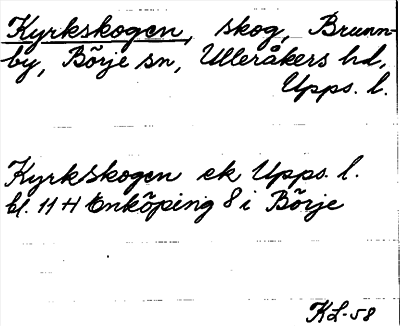 Kyrkskogen, skog, Brunn-
by, Börje sn, Ulleråkers hd,
Upps. l.
Kyrkskogen ek Upps. l.
bl. 11 H Enköping 8 i Börje
KL-58